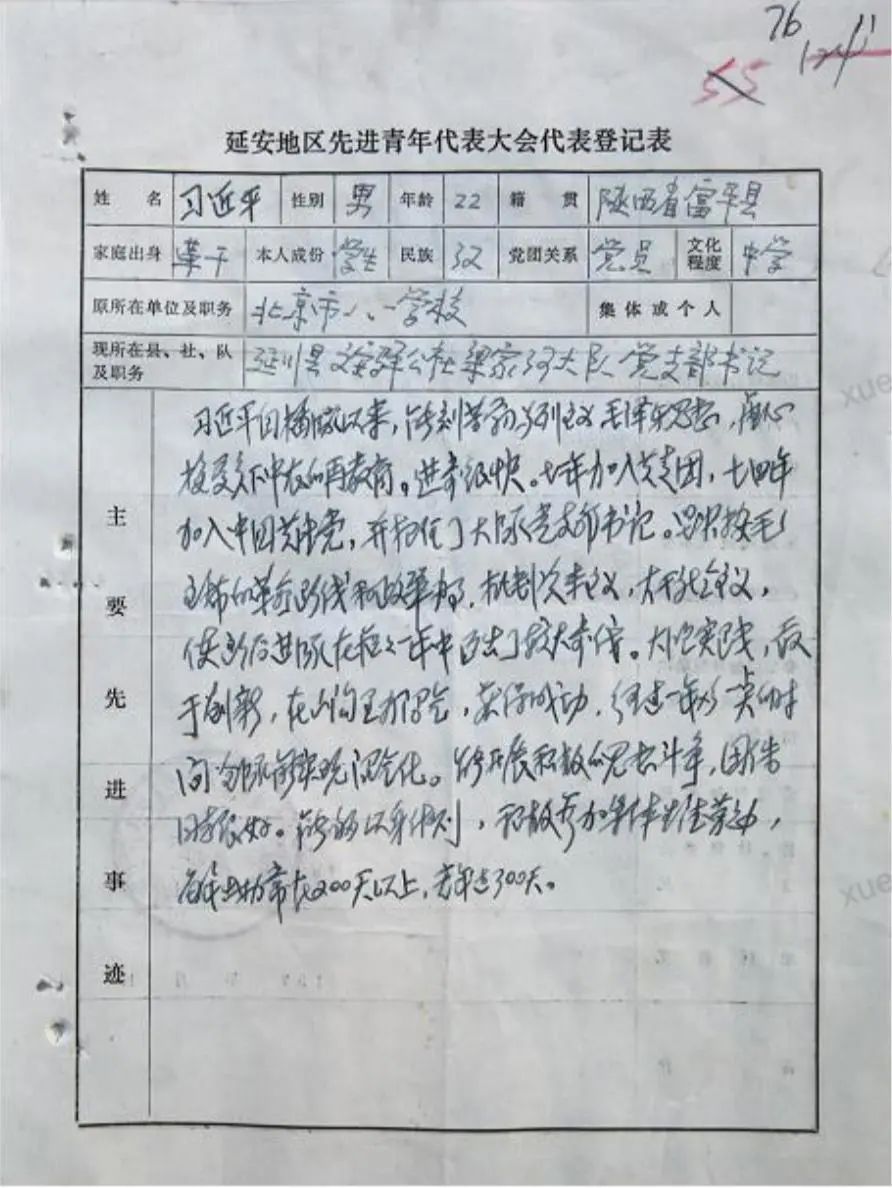 76
11
55
延安地区先进青年代表大会代表登记表
姓 名 习近平 性别 男 年龄 22 籍 贯 陕西省富平县
家庭出身 革干 本人成份 学生 民族 汉 党团关系 党员 文化程度 中学
原所在单位及职务 北京市八一学校 集体或个人
现所在县、社、队及职务 延川县文安驿公社梁家河大队 党支部书记
主要先进事迹
习近平自插队以来,能刻苦学习马列主义毛泽东思想,虚心
接受贫下中农的再教育。进步很快。七 年加入共青团,七四年
加入中国共产党,并担任了大队党支部书记。坚决按毛
主席的革命路线和政策办事,批判资本主义,大干社会主义,
使 后进队在 一年中 了较大变化。大胆实践,敢
于创新,在山沟里办沼气,获得成功,经过一年多一点的时
间 队 实现沼气化。能开展积极的思想斗争,团结
同志很好。能够以身作则,积极参加集体生产劳动,
每年出勤常在200天以上,去年达300天。
xue
xue